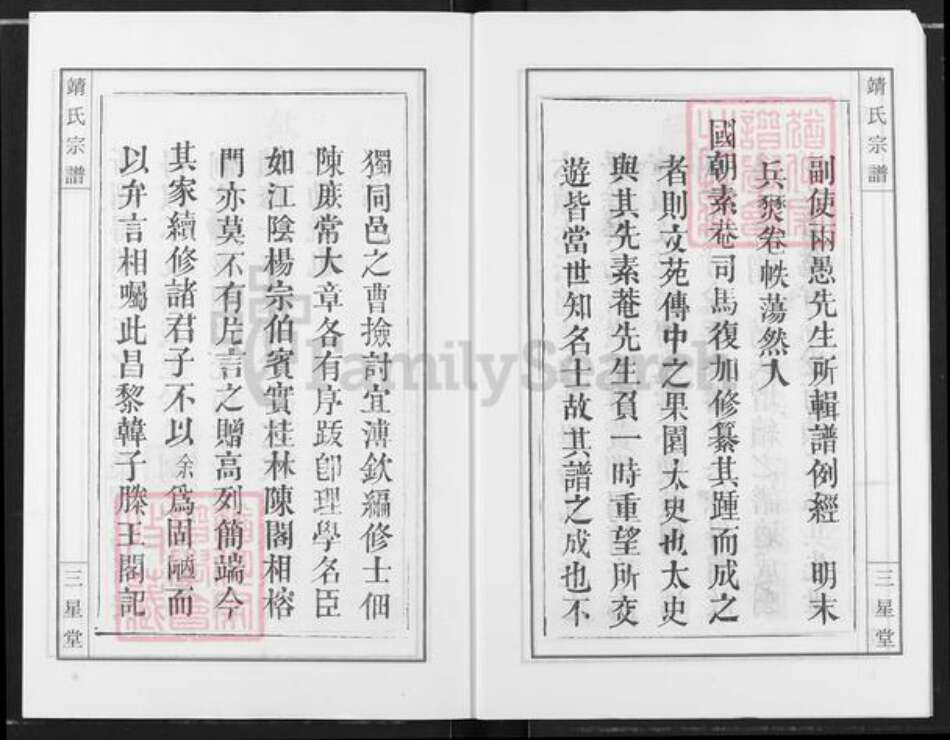 靖氏宗譜
副使兩愚先生所輯譜例經 明末
兵燹卷帙蕩然入
國朝素菴司馬復加修纂其踵而成之
者則文苑傳中之果園太史也太史
與其先素菴先生負一時重望所交
遊皆當世知名士故其譜之成也不
三星堂
獨同邑之曹撿討宜溥欽編修士佃
陳庶常大章各有序跋卽理學名臣
如江陰楊宗伯賓實桂林陳閣相榕
門亦莫不有片言之贈高列簡端今
其家續修諸君子不以余爲固陋而
以弁言相囑此昌黎韓子滕王閣記
靖氏宗譜
三星堂
FamilySearch